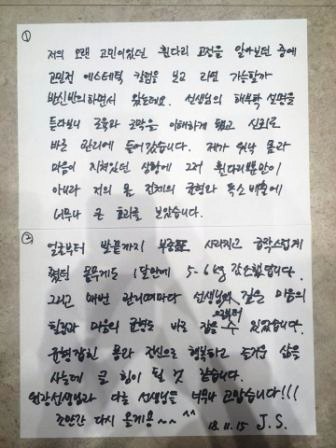 ①
저의 오랜 고민이었던 휜다리 교정을 알아보던 중에
고민전 에스테틱 칼럼을 보고 과연 가능할까
반신반의하면서 왔는데요. 선생님의 해부학 설명을
듣다보니 근육과 근막을 이해하게 됐고 신뢰로
바로 관리에 들어갔습니다. 제가 워낙 몸과
마음이 지쳐있던 상황에 그저 휜다리뿐만이
아니라 저의 몸 전체의 균형과 독소배출에
너무나 큰 효과를 보았습니다.
②
얼굴부터 발끝까지 부종 사라지고
쪘던 몸무게도 1달만에 5-6kg 감소했답니다.
그리고 매번 관리때마다 선생님의 깊은 마음의
힐링과 마음의 균형도 바로 잡을 수 있었습니다.
균형잡힌 몸과 정신으로 행복하고 즐거운 삶을
사는데 큰 힘이 될 것 같습니다.
원장선생님과 다른 선생님들 너무나 고맙습니다!!!
조만간 다시 올게용~~ ^^ 18.11.15 J.S.